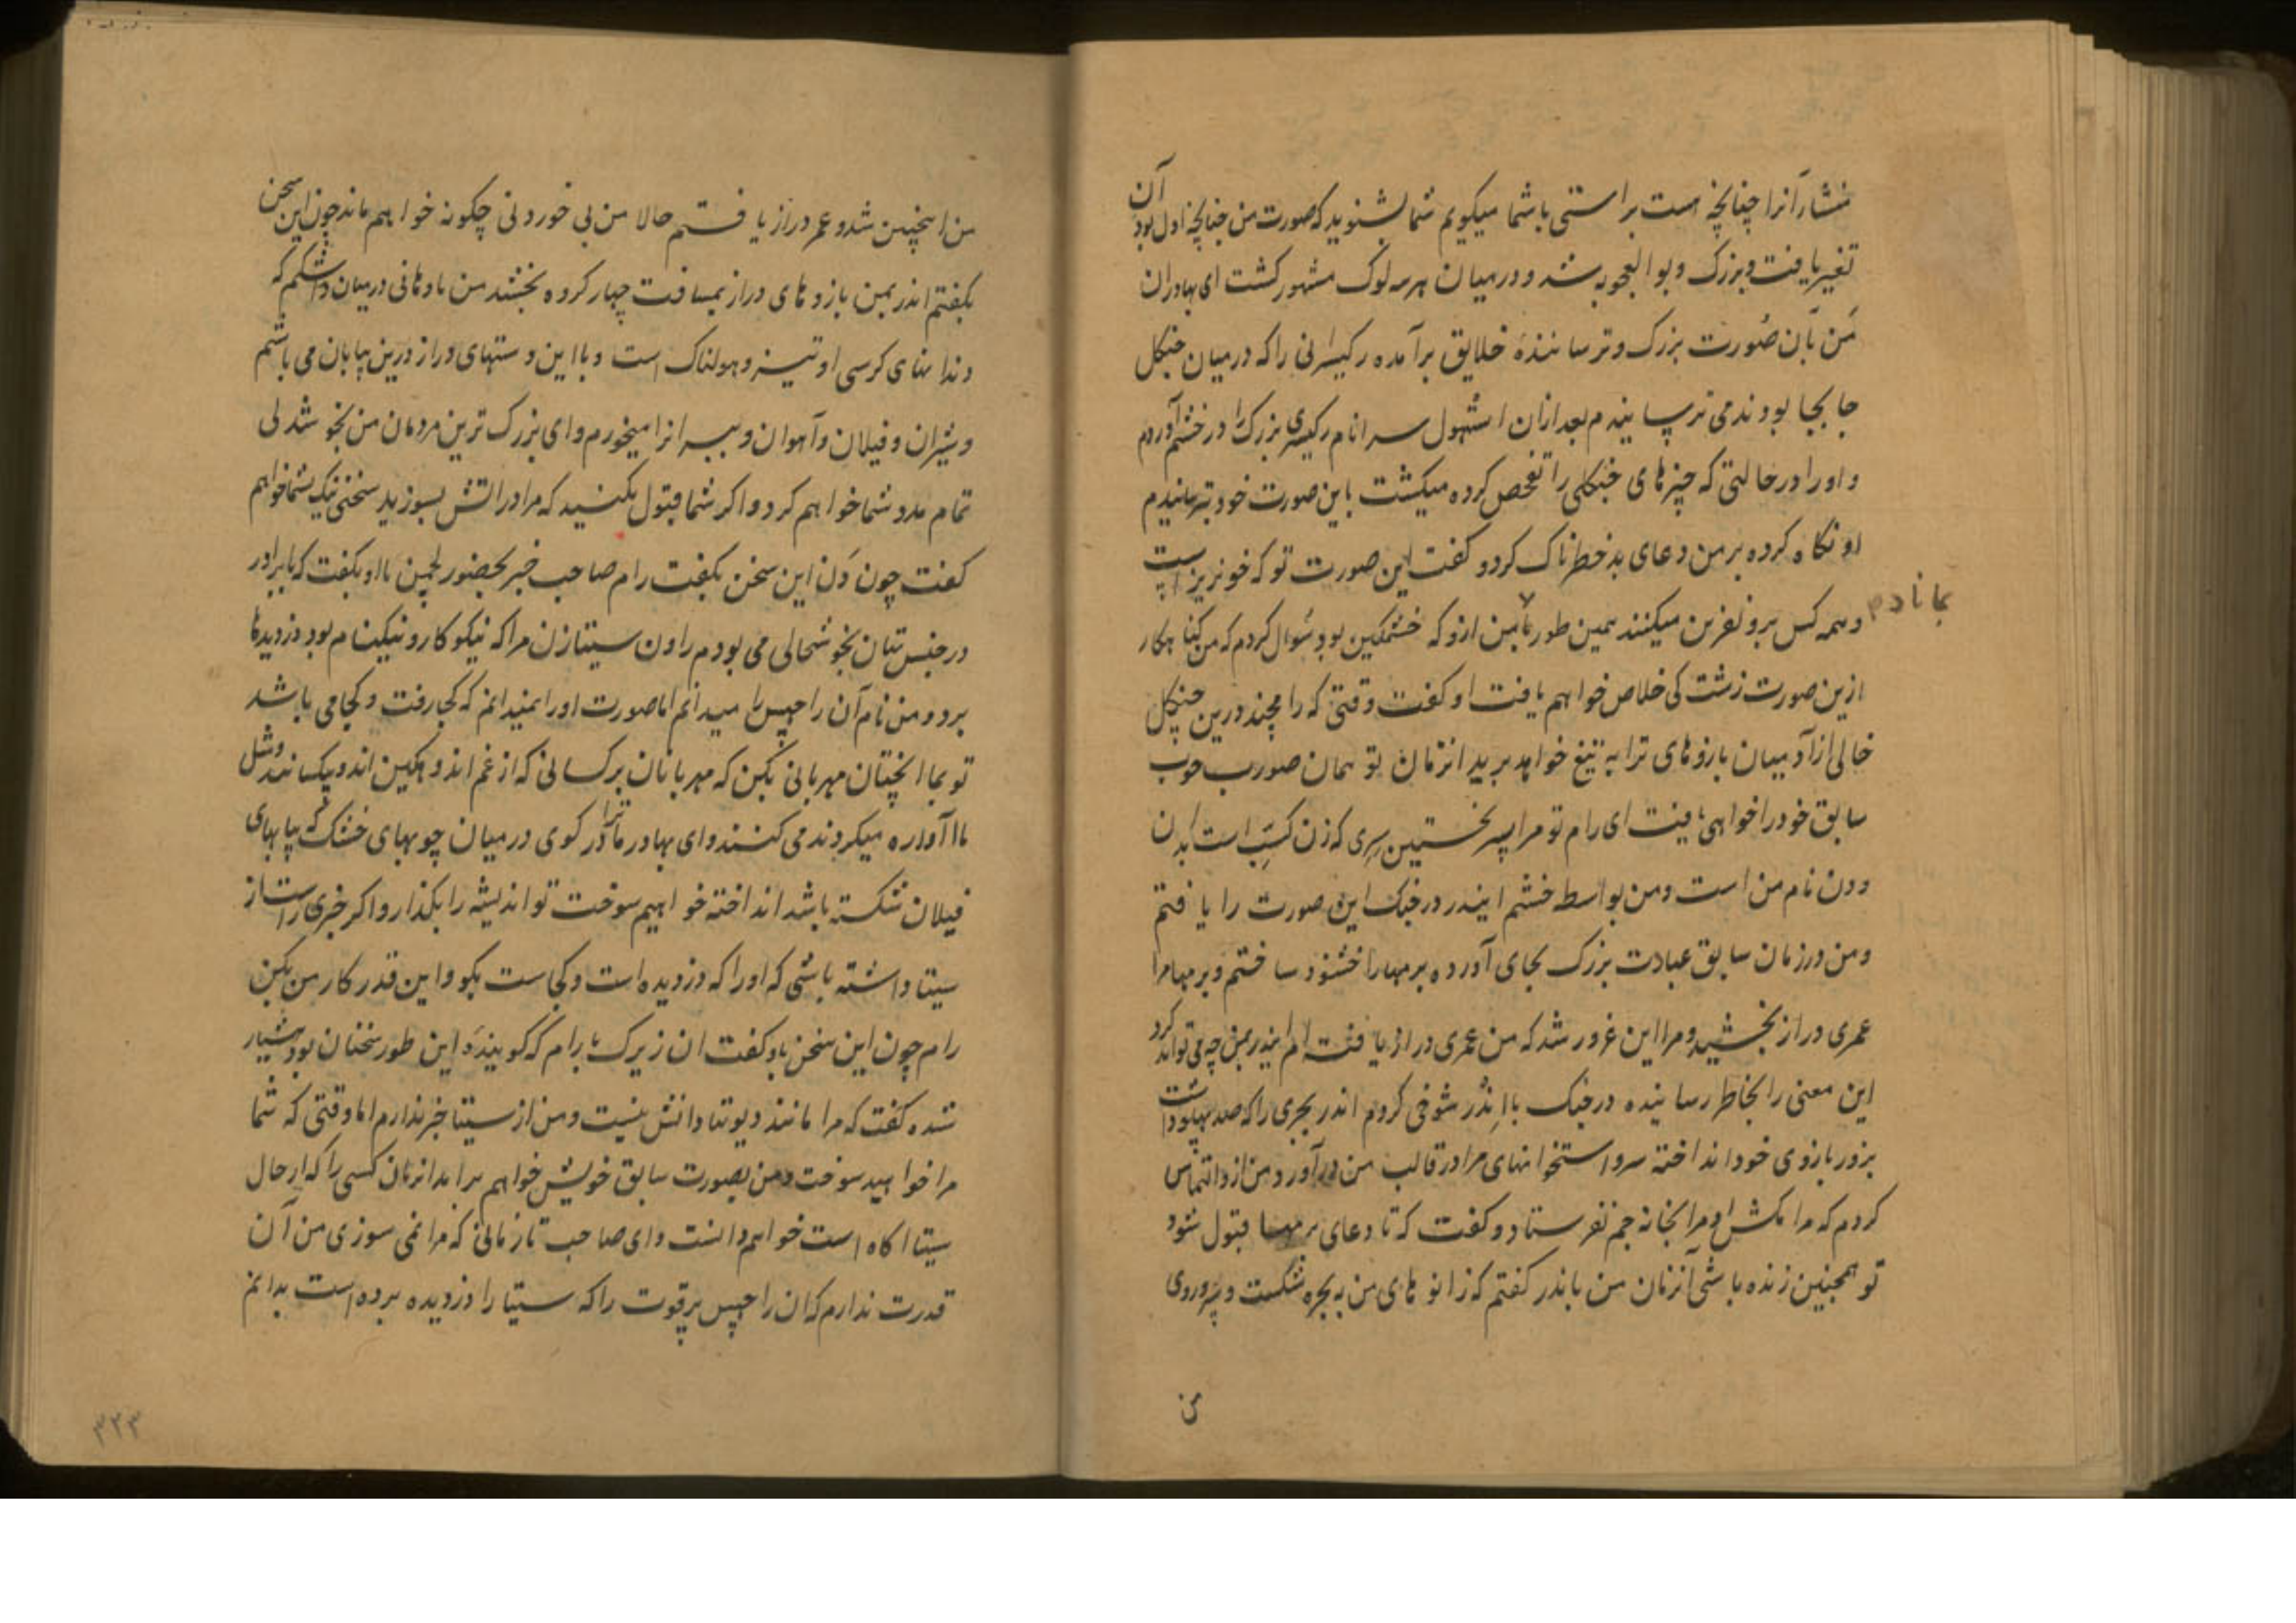 منشار آنرا چنانچه هست براستی باشما میکویم شما بشنوید که صورت من چنانچه اول بود آن
تغیر یافت و بزرک و بوالعجوبه شد و در میان هرسه لوک مشهور کشت ای بهادران
من بآن صورت بزرک و ترسانندهٔ خلایق برآمده رکیسرانی را که در میان جنکل
جا بجا بودند می ترسانیدم بعد ازان استهول سرا نام رکیسری بزرک را در خشم آوردم
و او را در حالتی که چیزهای جنکلی را تفحص کرده میکشت باین صورت خود بترسانیدم
او نکاه کرده بر من دعای بد خطرناک کرد و کفت این صورت تو که خونریز است
و همه کس برو نفرین میکنند همین طور بماناد من ازو که خشمکین بود سٔوال کردم که من کناهکار
ازین صورت زشت کی خلاص خواهم یافت او کفت وقتی که رامچند درین جنکل
خالی از آدمیان بازوهای ترا به تیغ خواهد برید انزمان تو همان صورت خوب
سابق خود را خواهی یافت ای رام تو مرا پسر نخستین سری که زن کسپ است بدان
و دن نام من است و من بواسطه خشم ایندر در جنک این صورت را یافتم
و من در زمان سابق عبادت بزرک بجای آورده برمها را خشنود ساختم و برمها مرا
عمری دراز بخشید و مرا این غرور شد که من عمری دراز یافته ام ایندر بمن چه می تواند کرد
این معنی را بخاطر رسانیده در جنک با اندر شوخی کردم اندر بجری را که صد پهلو داشت
بزور بازوی خود انداخته سر و استخوانهای مرا در قالب من در آورد و من ازو التماس
کردم که مرا بکش او مرا بخانه جم نفرستاد و کفت که تا دعای برمها قبول شود
تو همچنین زنده باشی آنزمان من با اندر کفتم که زانوهای من به بجره شکست و سر و روی
من
من اینچنین شد و عمر دراز یافتم حالا من بی خوردنی چکونه خواهم ماند چون این سخن
بکفتم اندر بمن بازوهای دراز بمسافت چهار کروه بخشند من با دهانی در میان شکم که
دندانهای کرسی او تیز و هولناک است و با این دستهای دراز درین بیابان می باشم
و شیران و فیلان و آهوان و ببرانرا میخورم و ای بزرک ترین مردمان من بخوشدلی
تمام مدد شما خواهم کرد و اکر شما قبول بکنید که مرا در آتش بسوزید سخنی نیک بشما خواهم
کفت چون دن این سخن بکفت رام صاحب خبر بحضور لچمن با او بکفت که با برادر
در جنستان بخوشحالی می بودم راون سیتا زن مرا که نیکوکار و نیکنام بود دزدیده
برد و من نام آن راچهس را میدانم اما صورت او را نمیدانم که کجا رفت و کجا می باشد
تو بما آنچنان مهربانی بکن که مهربانان بر کسانی که از غم اندوهکین اند و بیکسانند و مثل
ما آواره میکردند می کنند و ای بهادر ما ترا در کوی در میان چوبهای خشک که بپاهای
فیلان شکسته باشد انداخته خواهیم سوخت تو اندیشه را بکذار و اکر خبری راست از
سیتا داشته باشی که او را که دزدیده است و کجاست بکو و این قدر کار من بکن
رام چون این سخن باو کفت آن زیرک با رام که کویندهٔ این طور سخنان بود هشیار
شده کفت که مرا مانند دیوتا دانش نیست و من از سیتا خبر ندارم اما وقتی که شما
مرا خواهید سوخت و من بصورت سابق خویش خواهم برآمد انزمان کسی را که از حال
سیتا اکاه است خواهم دانست و ای صاحب تا زمانی که مرا نمی سوزی من آن
قدرت ندارم که آن راچهس پرقوت را که سیتا را دزدیده برده است بدانم
۳۴۳